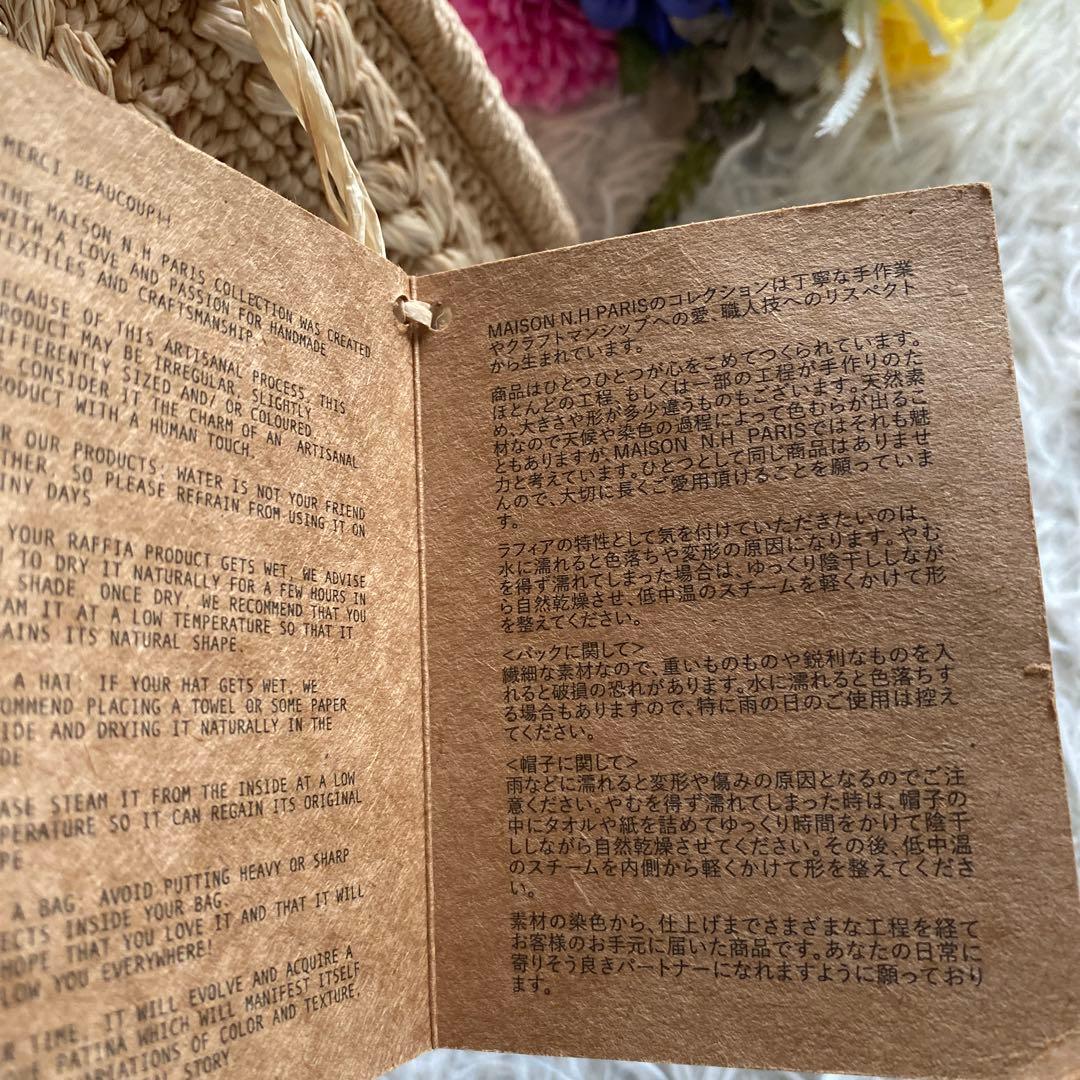 MERCI BEAUCOUP!!
THE MAISON N.H PARIS COLLECTION WAS CREATED
WITH A LOVE AND PASSION FOR HANDMADE
TEXTILES AND CRAFTSMANSHIP.
BECAUSE OF THIS ARTISANAL PROCESS, THIS
PRODUCT MAY BE IRREGULAR, SLIGHTLY
DIFFERENTLY SIZED AND/ OR COLOURED
CONSIDER IT THE CHARM OF AN ARTISANAL
PRODUCT WITH A HUMAN TOUCH.
OUR PRODUCTS, WATER IS NOT YOUR FRIEND
SO PLEASE REFRAIN FROM USING IT ON
DAYS
YOUR RAFFIA PRODUCT GETS WET, WE ADVISE
TO DRY IT NATURALLY FOR A FEW HOURS IN
SHADE. ONCE DRY, WE RECOMMEND THAT YOU
IT AT A LOW TEMPERATURE SO THAT IT
ITS NATURAL SHAPE.
A HAT: IF YOUR HAT GETS WET, WE
PLACING A TOWEL OR SOME PAPER
AND DRYING IT NATURALLY IN THE
STEAM IT FROM THE INSIDE AT A LOW
SO IT CAN REGAIN ITS ORIGINAL
A BAG, AVOID PUTTING HEAVY OR SHARP
INSIDE YOUR BAG.
HOPE THAT YOU LOVE IT AND THAT IT WILL
YOU EVERYWHERE!
TIME, IT WILL EVOLVE AND ACQUIRE A
PATINA WHICH WILL MANIFEST ITSELF
OF COLOR AND TEXTURE,
STORY
MAISON N.H PARISのコレクションは丁寧な手作業
やクラフトマンシップへの愛、職人技へのリスペクト
から生まれています。
商品はひとつひとつが心をこめてつくられています。
ほとんどの工程、もしくは一部の工程が手作りのた
め、大きさや形が多少違うものもございます。天然素
材なので天候や染色の過程によって色むらが出るこ
ともありますが、MAISON N.H PARISではそれも魅
力と考えています。ひとつとして同じ商品はありませ
んので、大切に長くご愛用頂けることを願っていま
す。
ラフィアの特性として気を付けていただきたいのは、
水に濡れると色落ちや変形の原因になります。やむ
を得ず濡れてしまった場合は、ゆっくり陰干ししなが
ら自然乾燥させ、低中温のスチームを軽くかけて形
を整えてください。
<バックに関して>
繊細な素材なので、重いものものや鋭利なものを入
れると破損の恐れがあります。水に濡れると色落ちす
る場合もありますので、特に雨の日のご使用は控え
てください。
<帽子に関して>
雨などに濡れると変形や傷みの原因となるのでご注
意ください。やむを得ず濡れてしまった時は、帽子の
中にタオルや紙を詰めてゆっくり時間をかけて陰干
ししながら自然乾燥させてください。その後、低中温
のスチームを内側から軽くかけて形を整えてくださ
い。
素材の染色から、仕上げまでさまざまな工程を経て
お客様のお手元に届いた商品です。あなたの日常に
寄りそう良きパートナーになれますように願っており
ます。